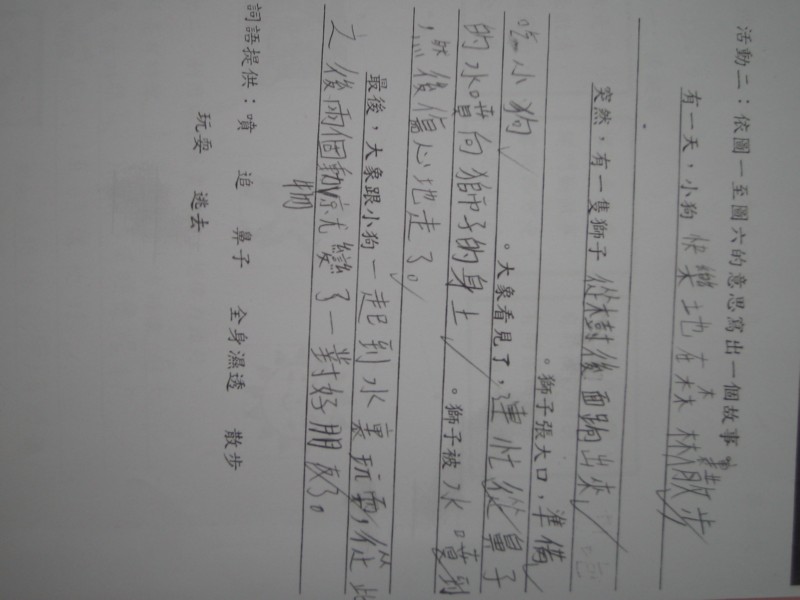 活動二：依圖一至圖六的意思寫出一個故事
有一天，小狗快樂地在森林散步
突然，有一隻獅子從樹後面跑出來
。獅子張大口，準備
吃小狗
。大象看見了，連忙從鼻子
的水噴向獅子的身上
。獅子被水噴到
然後傷心地走了。
最後，大象跟小狗一起到水裏玩耍，從此
之後兩個動物就變了一對好朋友了。
詞語提供：噴 追 鼻子 全身濕透 散步
玩耍 逃去